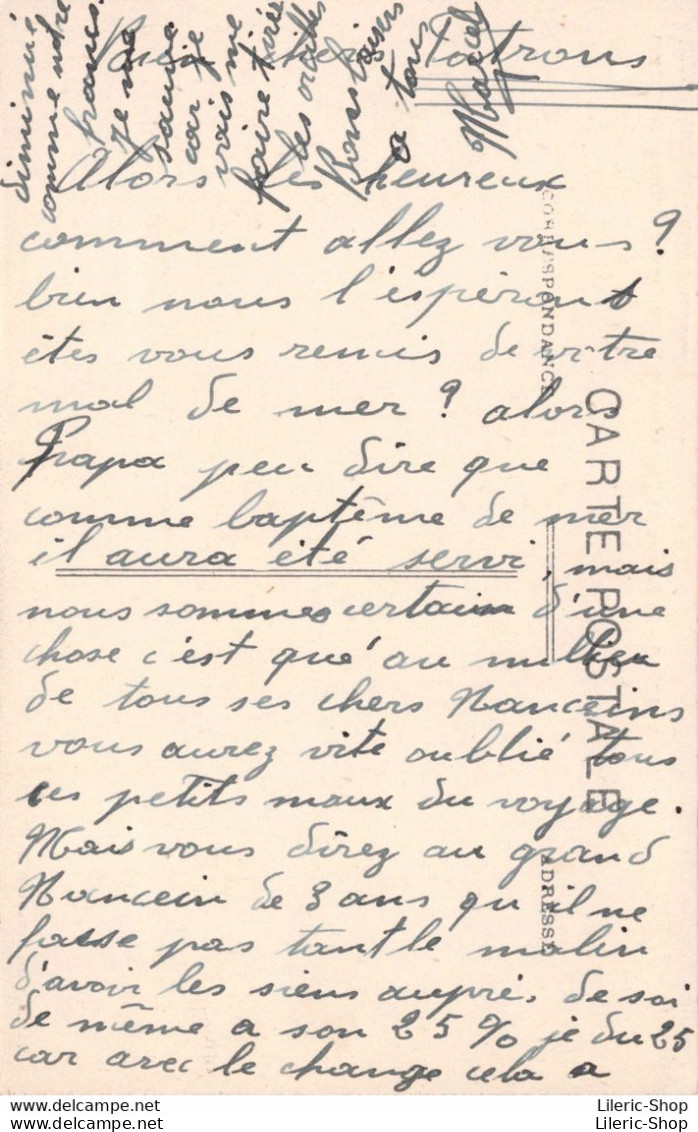 Bien chers Patrons
Alors les heureux
comment allez vous ?
bien nous l'espérons
êtes vous remis de votre
mal de mer ? alors
Papa peu dire que
comme baptême de mer
il aura été servi, mais
nous sommes certain d'une
chose c'est qu'au milieu
de tous ses chers Nanceins
vous aurez vite oublié tous
ces petits maux du voyage.
Mais vous direz au grand
Nancein de 3 ans qu'il ne
fasse pas tant le malin
d'avoir les siens auprés de soi
de même a son 25 % je du 25
car avec le change cela a
diminué
comme notre
francs.
Je me
sauve
car je
vais me
faire tirée
les oreilles
Bons baisers
a tous
Marcel
CORRESPONDANCE
CARTE POSTALE
ADRESSE
delcampe.net
Lileric-Shop
delcampe.net
Lileric-Shop